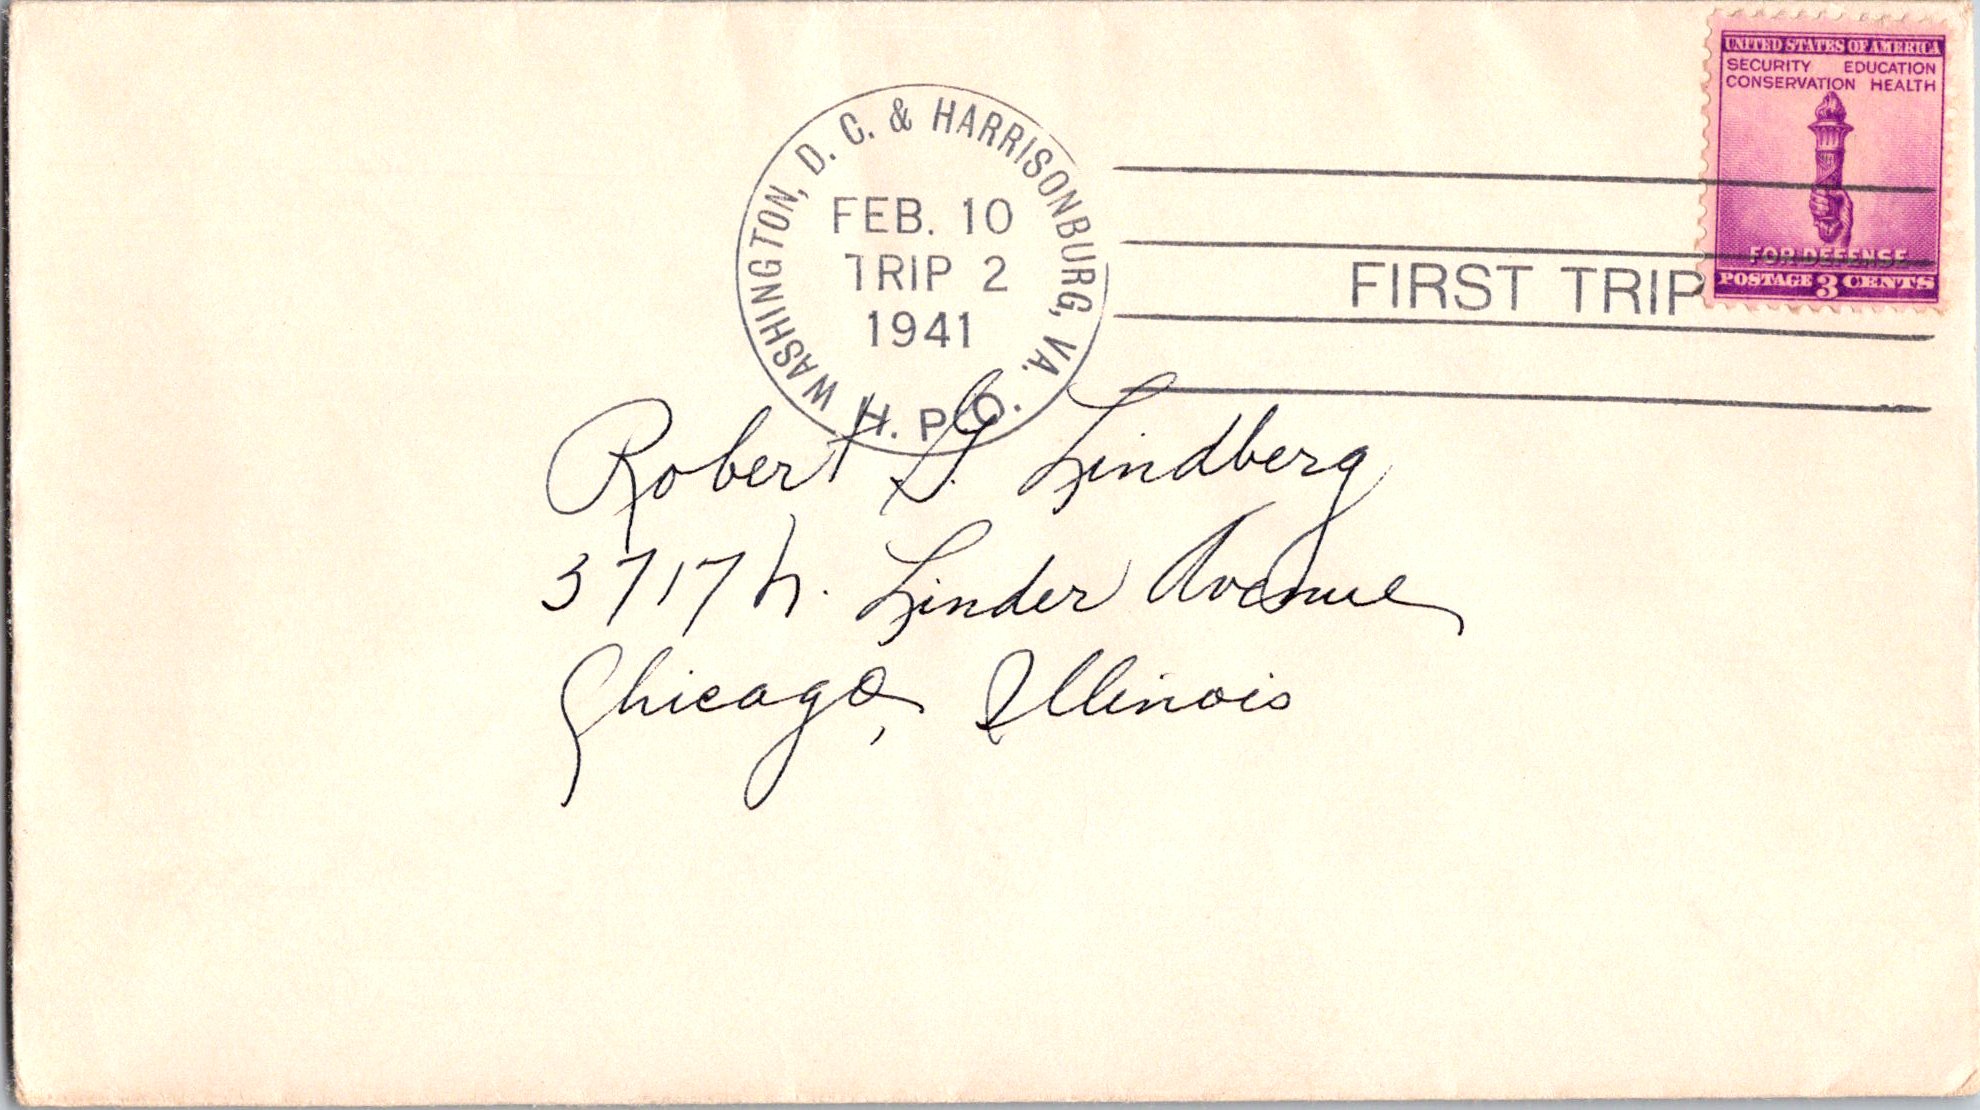 UNITED STATES OF AMERICA
SECURITY EDUCATION
CONSERVATION HEALTH
FOR DEFENSE
POSTAGE 3 CENTS
WASHINGTON, D. C. & HARRISONBURG, VA.
FEB. 10
TRIP 2
1941
H. P. O.
FIRST TRIP
Robert G. Lindberg
3717 N. Linder Avenue
Chicago, Illinois